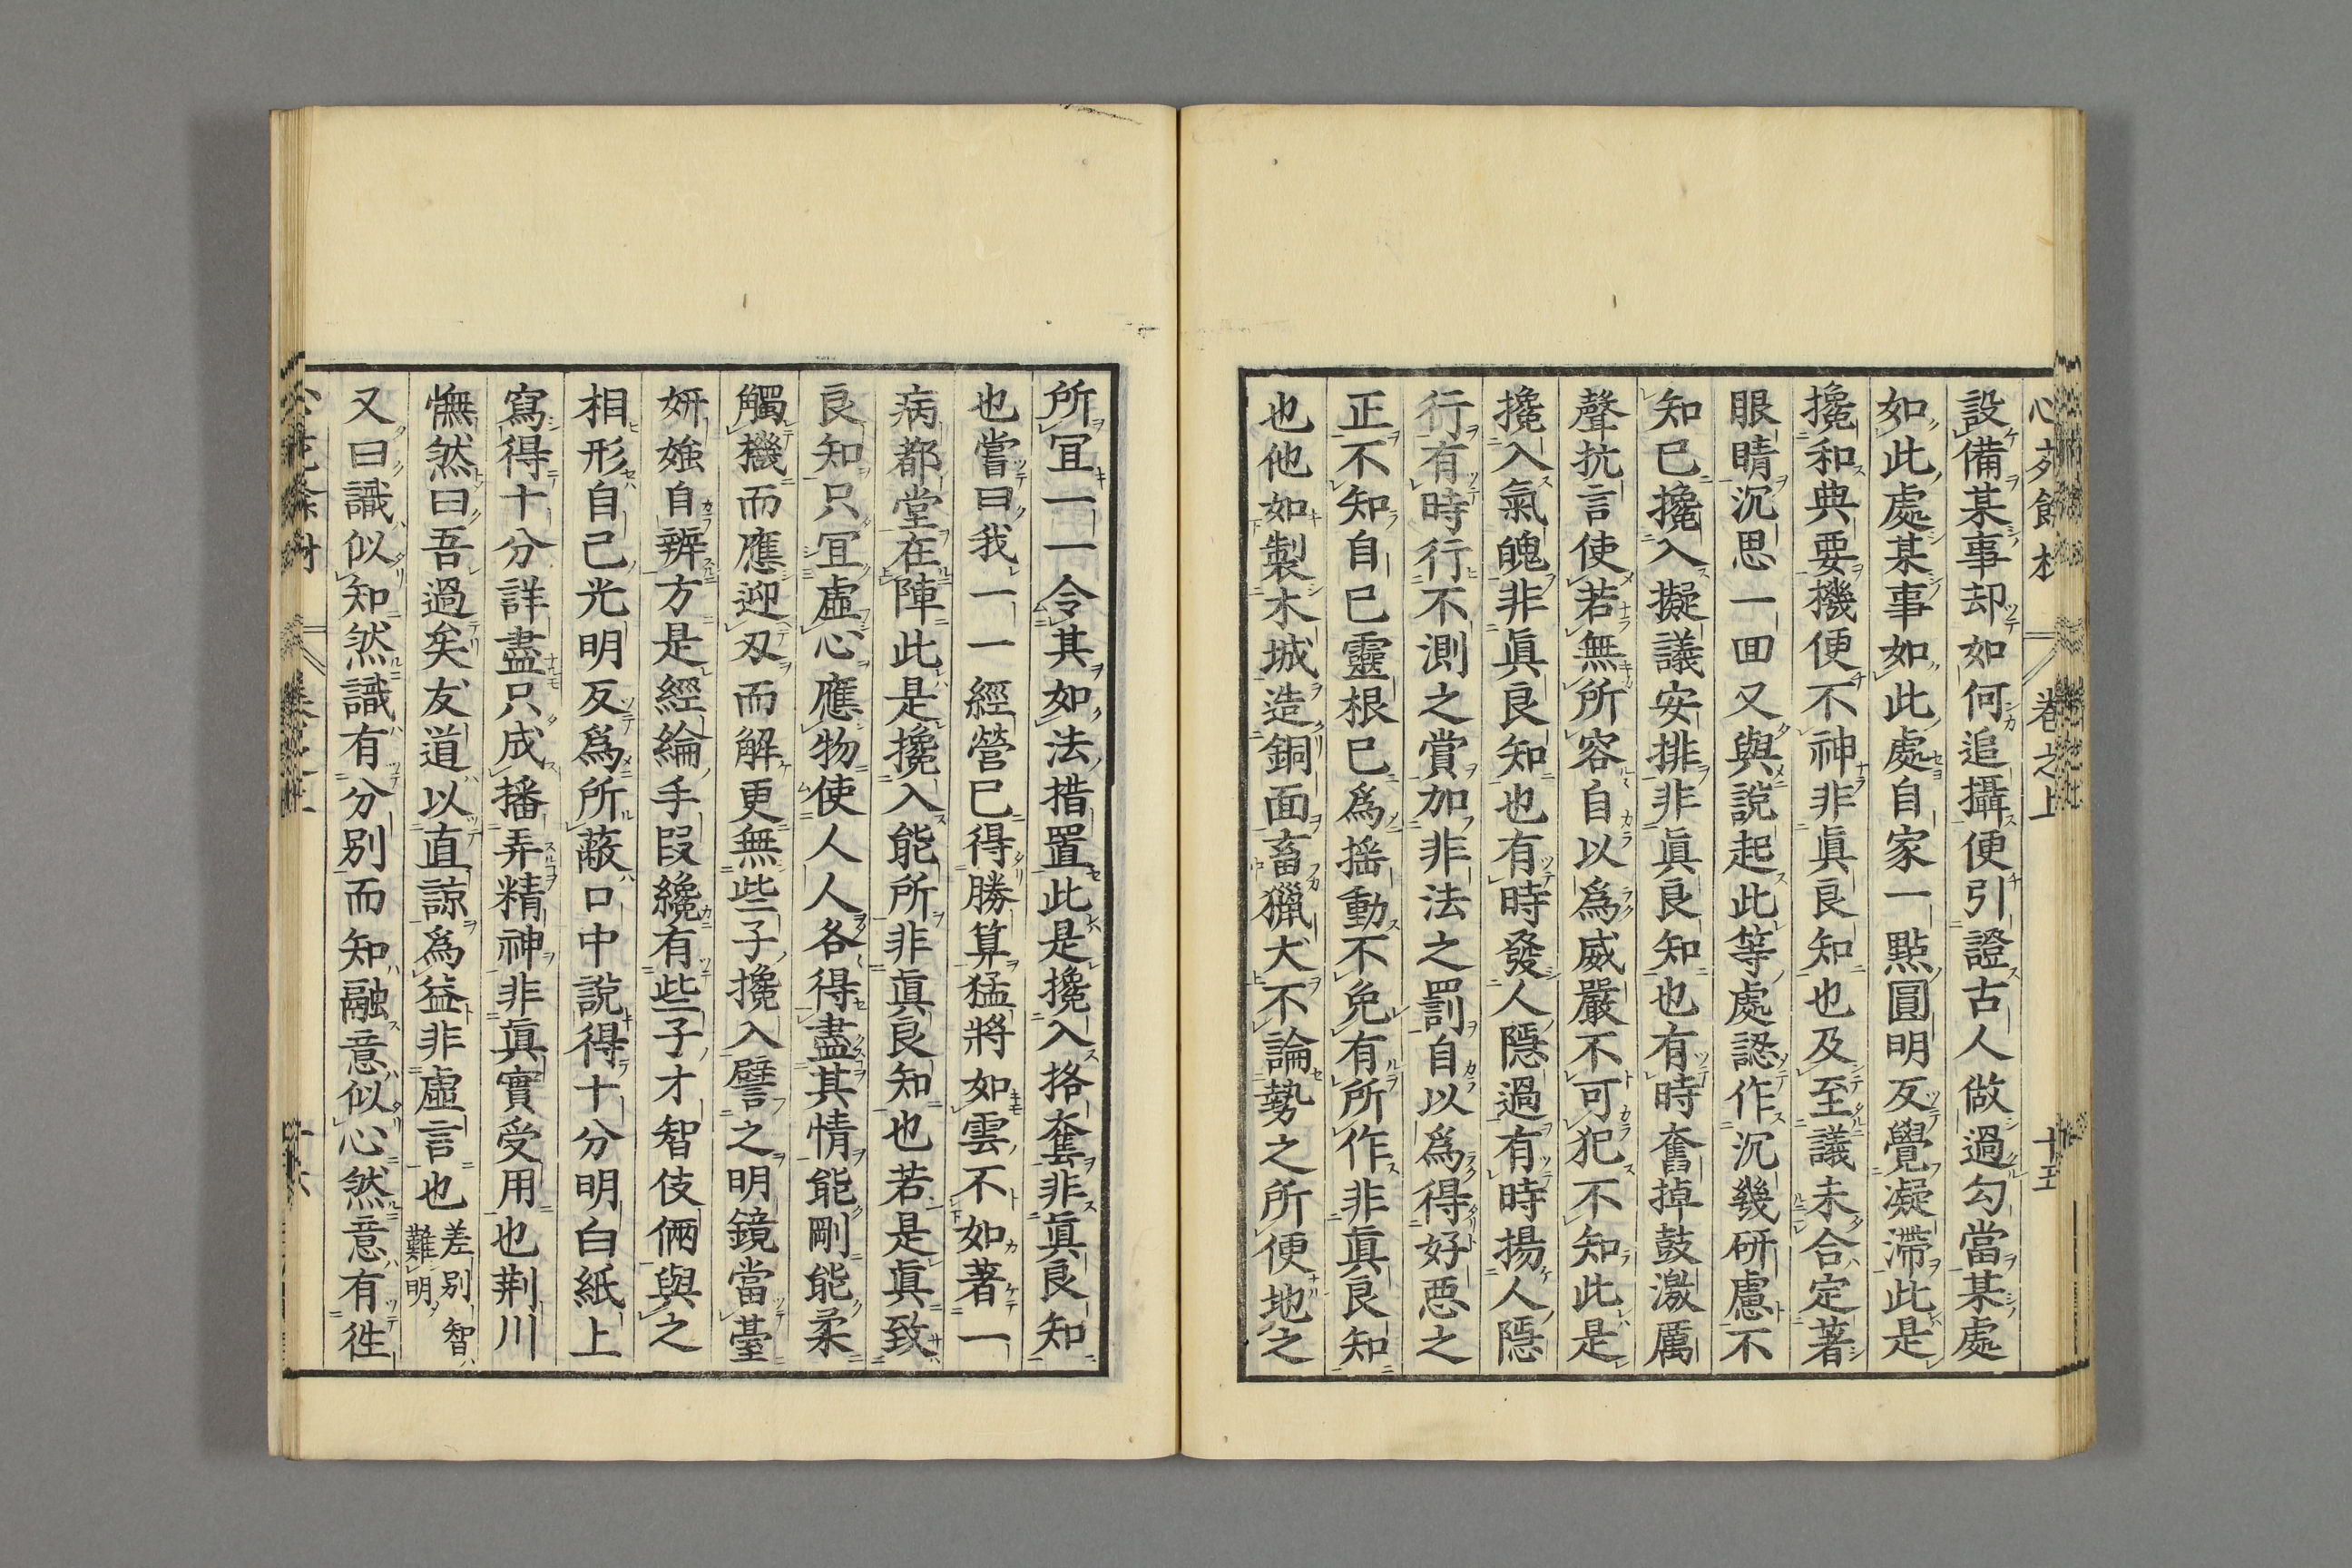 設備某事却如何追攝便引證古人做過勾當某處
如此處某事如此處自家一點圓明反覺凝滯此是
攙和典要機便不神非眞良知也及至議未合定著
眼睛沉思一回又與說起此等處認作沉幾研慮不
知已攙入擬議安排非眞良知也有時奮掉鼓激厲
聲抗言使若無所容自以爲威嚴不可犯不知此是
攙入氣魄非眞良知也有時發人隱過有時揚人隱
行有時行不測之賞加非法之罰自以爲得好惡之
正不知自己靈根已爲搖動不免有所作非眞良知
也他如製木城造銅面畜獵犬不論勢之所便地之
所宜一一令其如法措置此是攙入挌奪非眞良知
也嘗曰我一一經營已得勝算猛將如雲不如著一
病都堂在陣此是攙入能所非眞良知也若是眞致
良知只宜虛心應物使人人各得盡其情能剛能柔
觸機而應迎刃而解更無些子攙入譬之明鏡當臺
妍媸自辨方是經綸手叚纔有些子才智伎倆與之
相形自己光明反爲所蔽口中說得十分明白紙上
寫得十分詳盡只成播弄精神非眞實受用也荆川
憮然曰吾過矣友道以直諒爲益非虛言也差別智難明
又曰識似知然識有分別而知融意似心然意有徃